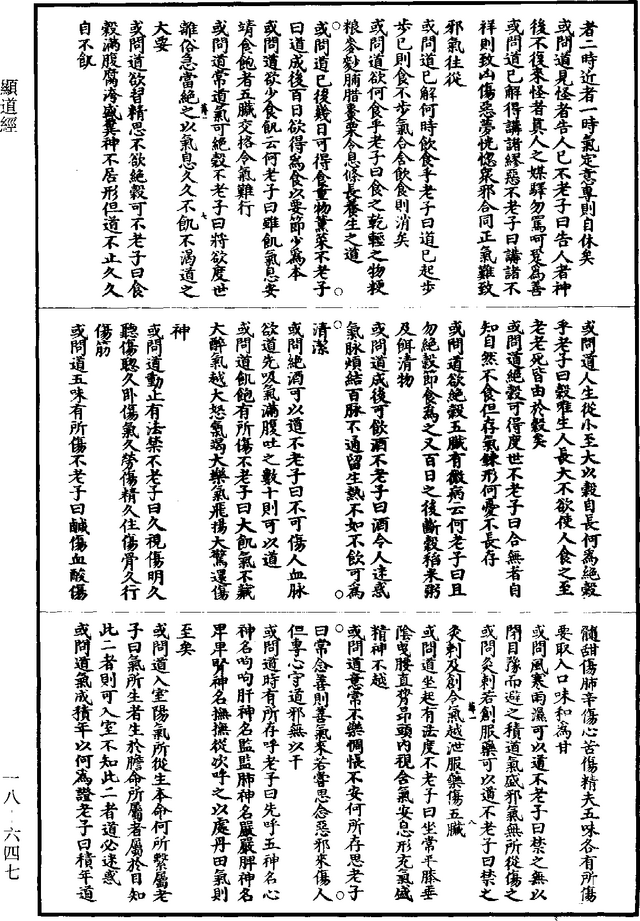 者二時近者一時氣定意專則自休矣
或問道見怪者告人已不老子曰告人者神
後不復來怪者真人之媒驛勿罵可爰為善
或問道已解得講諸繆惡不老子曰講諸不
祥則致凶傷惡夢恍惚眾邪合同正氣難致
邪氣往從
或問道已解何時飲食乎老子曰道已起步
步已則食不步氣合含飲食則消矣
或問欲何食乎老子曰食之乾輕之物粳
粮麥麨脯腊棗栗令息條長養生之道
或問道已後幾日可得食重物葷菜不老子
曰道成後百日欲得為食以要節少為本
或問道欲少食飢云何老子曰雖飢氣息安
靖食飽者五臟交挌令氣難行
或問道常道氣可絕穀不老子曰將欲度世
離俗急當絕之以氣息久久不飢不渴道之
大要
或問道欲習精思不欲絕穀可不老子曰食
穀滿腹腐洿盛糞神不居形但道不止久久
自不飢
或問道人生從小至大以穀自長何為絕穀
乎老子曰穀唯生人長大不欲使人食之至
老老死皆由於穀矣
或問道絕穀可得度世不老子曰合無者自
知自然不食但存氣鍊形何憂不長存
或問道欲絕穀五臟有微病云何老子曰且
勿絕穀即食為之又百日之後斷穀稻米粥
及餌清物
或問道成後可飲酒不老子曰酒令人迷惑
氣脉煩結百脉不通留生熱不如不飲可為
清潔
或問絕酒可以道不老子曰不可傷人血脉
欲道先吸氣滿腹吐之數十則可以道
或問道飢飽有所傷不老子曰大飢氣不藏
大醉氣越大怒氣竭大樂氣飛揚大驚還傷
神
或問道動止有法禁不老子曰久視傷明久
聽傷聰久卧傷氣久勞傷精久住傷骨久行
傷筋
或問道五味有所傷不老子曰鹹傷血酸傷
髓甜傷肺辛傷心苦傷精夫五味各有所傷
要取入口味和為甘
或問風寒雨濕可以道不老子曰禁之無以
閉目豫而避之積道氣盛邪氣無所從傷之
或問灸刺若創服藥可以道不老子曰禁之
灸刺及創令氣越泄服藥傷五臟
或問道坐起有法度不老子曰坐常平膝垂
陰曳腰直脊昂頭內視含氣安息形充氣盛
精神不越
或問道意常不樂惆悵不安何所存思老子
曰常念善則善氣來若嘗思念惡邪來傷人
但專心守道邪無以干
或問道時有所存呼老子曰先呼五神名心
神名呴呴肝神名監監肺神名嚴嚴脾神名
卑卑腎神名撫撫從次呼之以處丹田氣則
至矣
或問道入室陽氣所從生本命何所繫屬老
子曰氣所生者生於膽命所屬者屬於目知
此二者則可入室不知此二者道必迷惑
或問道氣成積年以何為證老子曰積年道
顯道經
一八·六四七